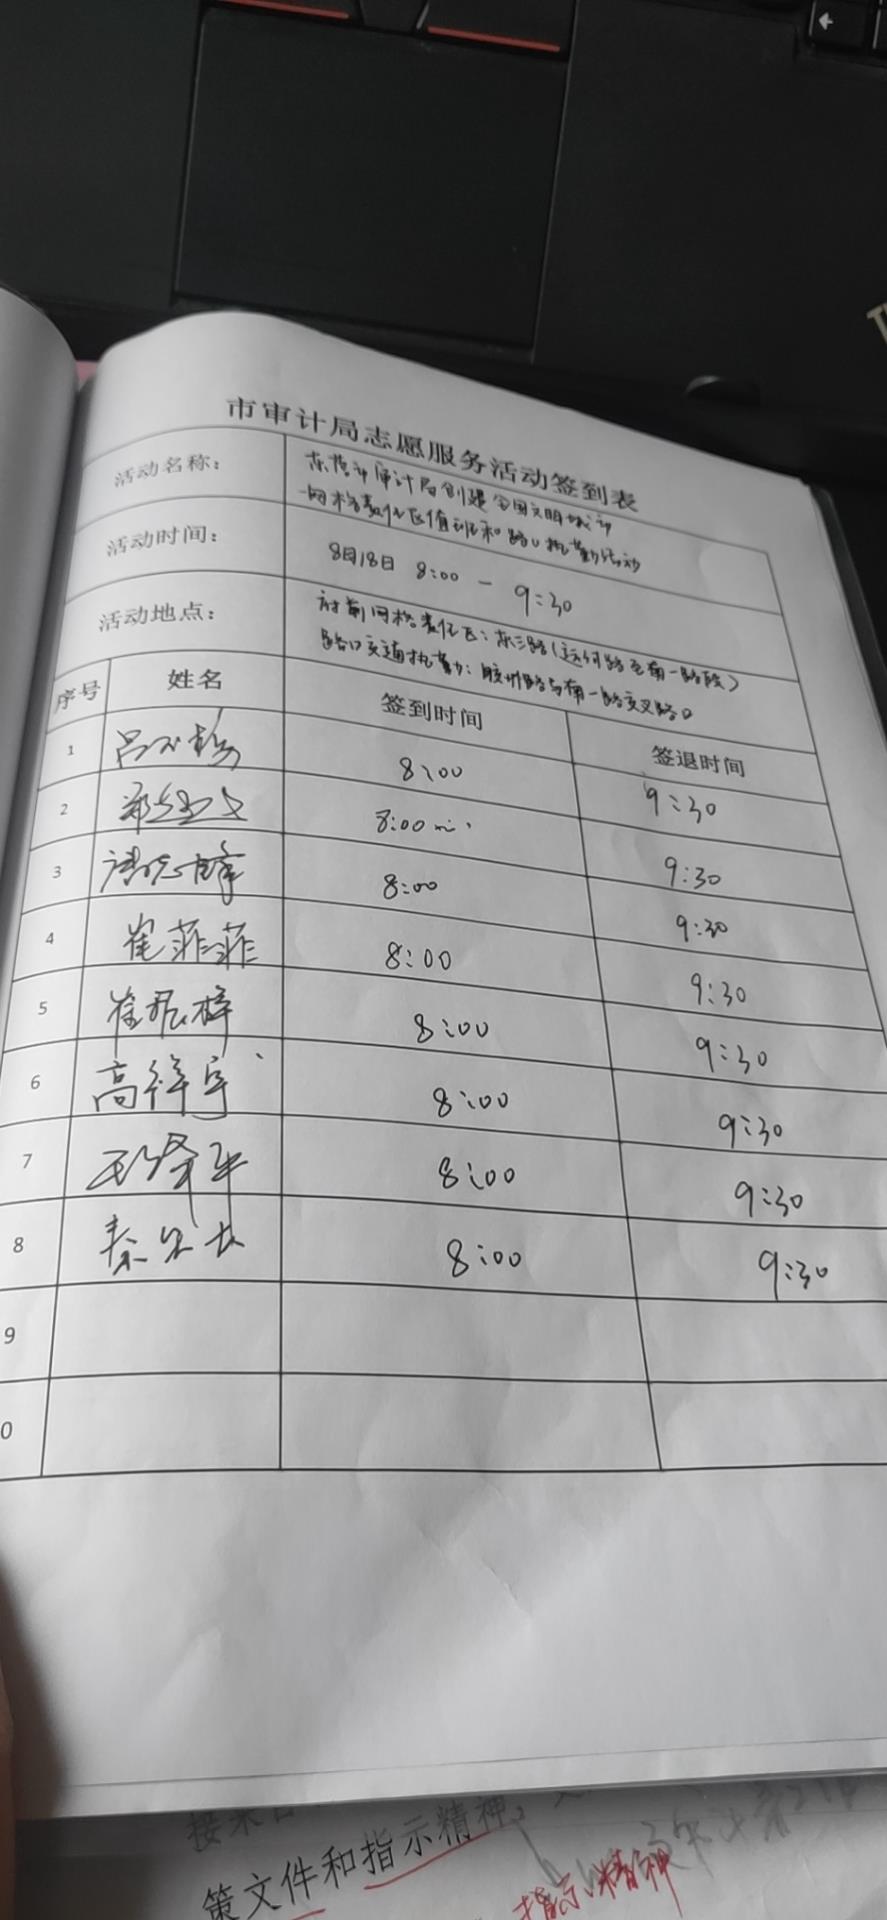 市审计局志愿服务活动签到表
活动名称： 东营市审计局创建全国文明城市
网格责任区值班和路口执勤活动
活动时间： 8月18日 8:00 — 9:30
活动地点： 府前网格责任区：东三路（运河路至南一路段）
路口交通执勤：胶州路与南一路交叉路口
序号 姓名 签到时间 签退时间
1 8:00 9:30
2 8:00 9:30
3 8:00 9:30
4 崔菲菲 8:00 9:30
5 崔振梓 8:00 9:30
6 高祥宇 8:00 9:30
7 8:00 9:30
8 秦 8:00 9:30
9
0
策文件和指示精神
指示精神